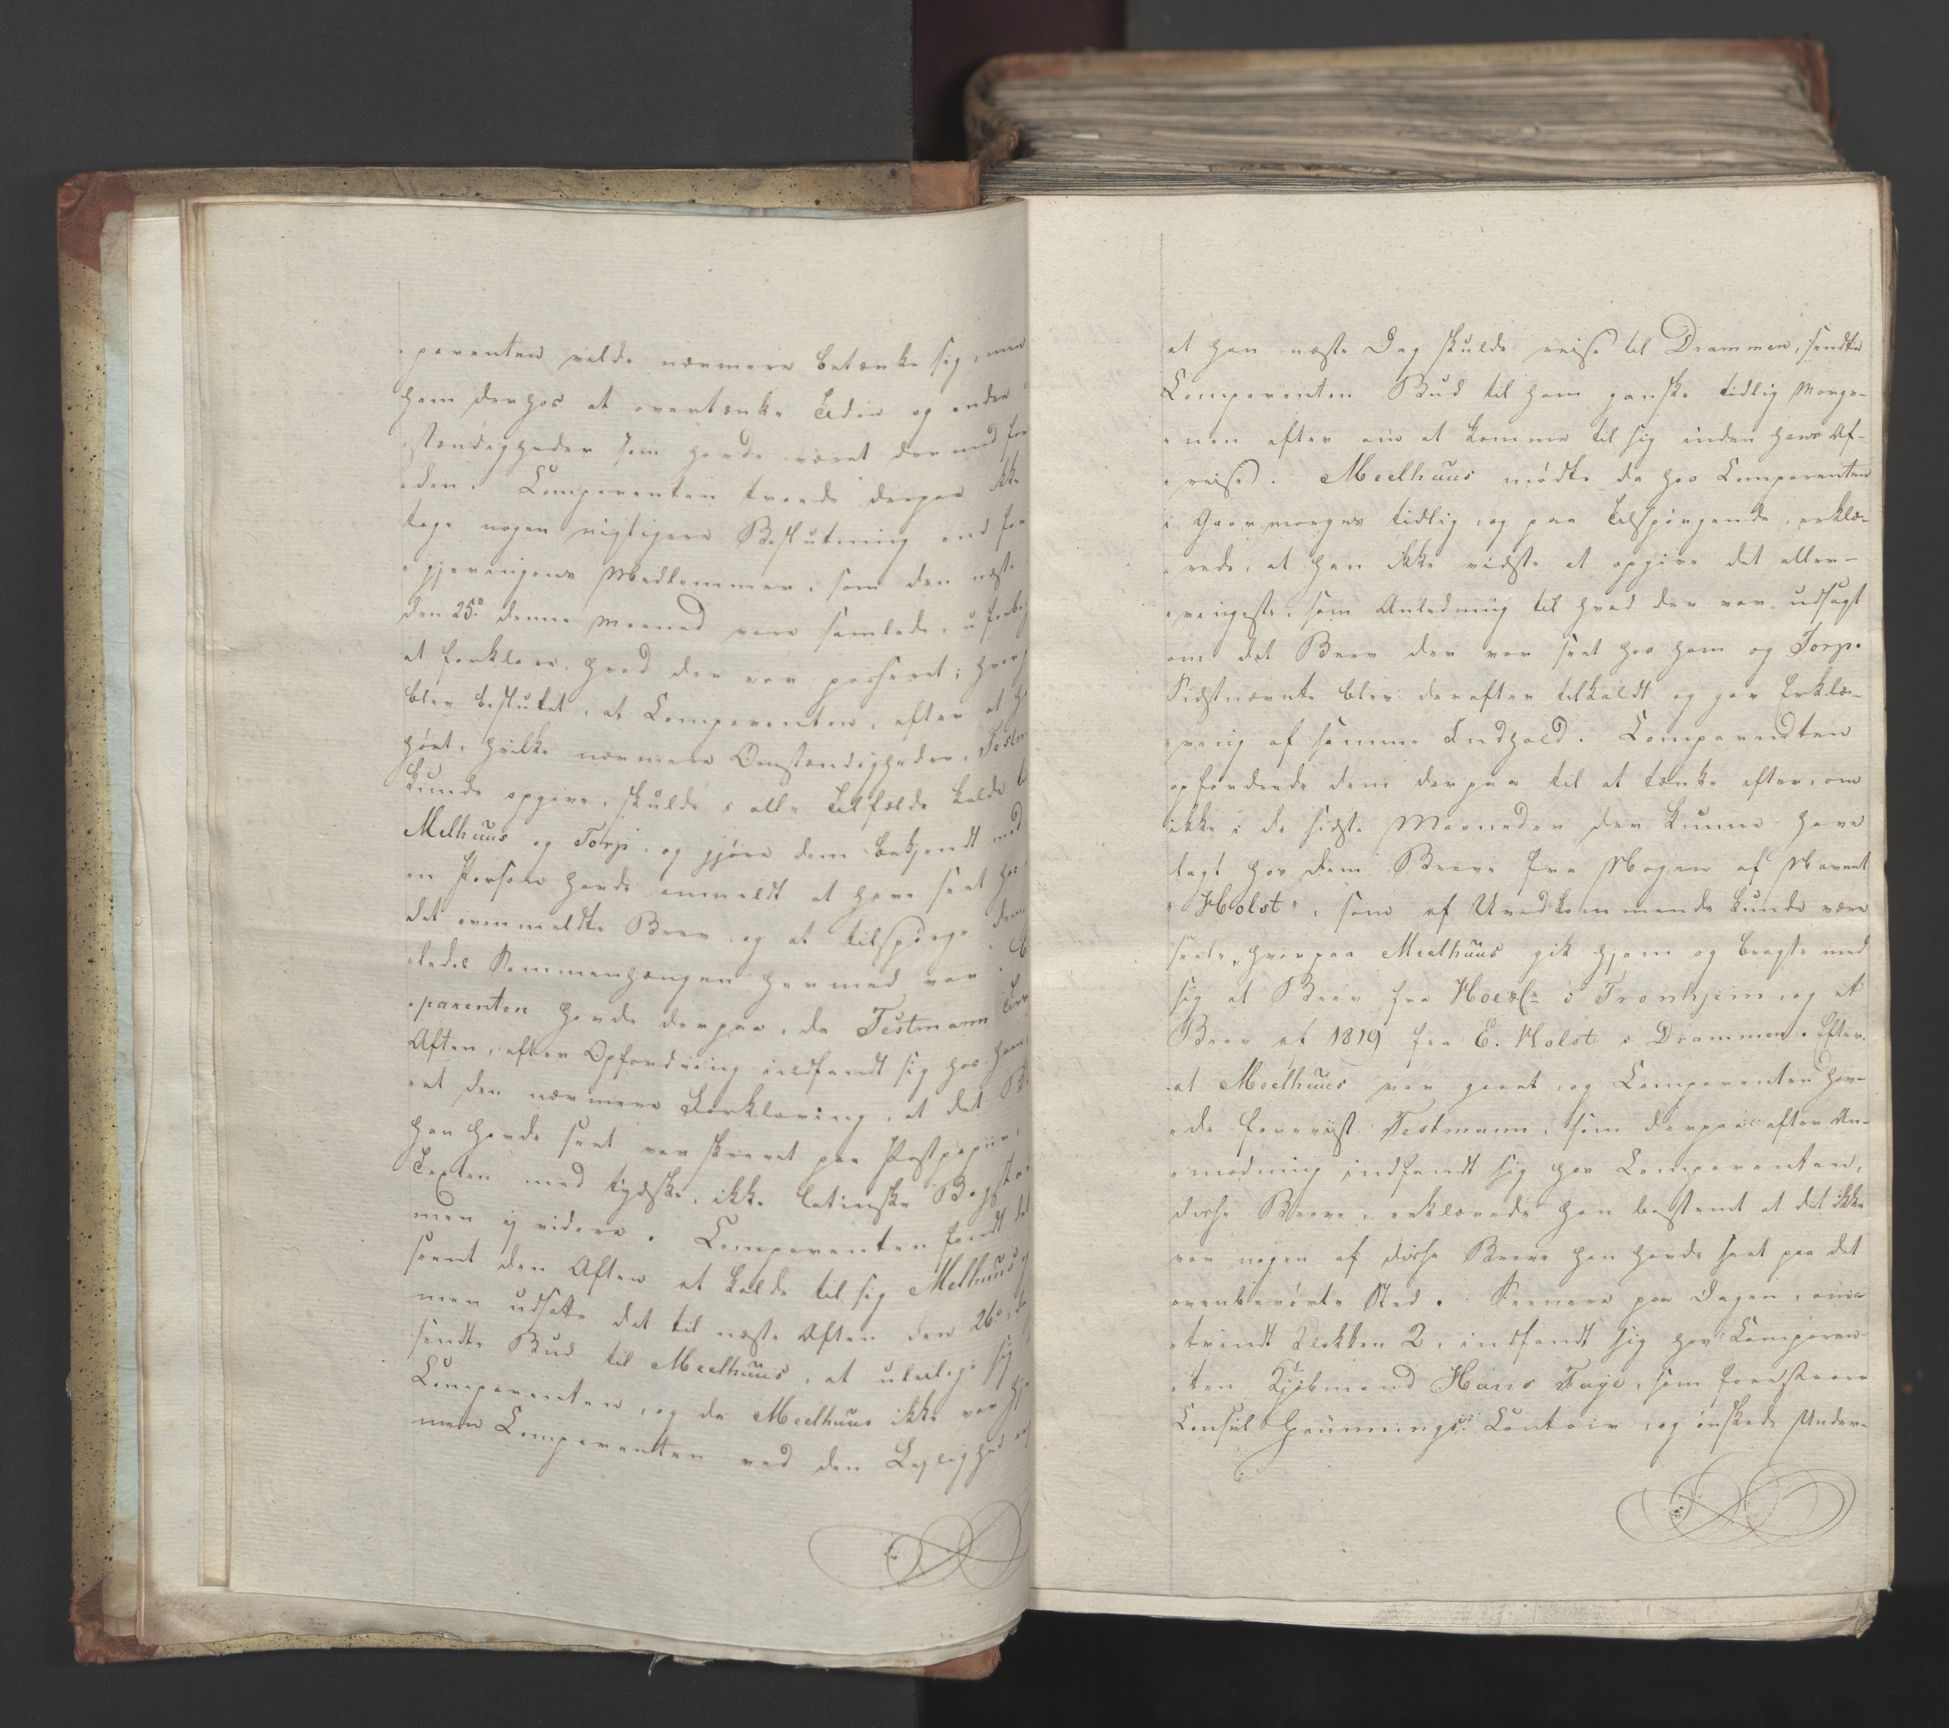 parenten vilde nærmere betænke sig, men
ham derhos at overtænke Tiden og andre
stændigheder som havde været dermed for
den. Comparenten troede derpaa ikke
tage nogen vigtigere Beslutning end for
gjeringens Medlemmer, som den næste
den 25de denne Maaned vare samlede, uforbe
at forklare, hvad der var passeret; hvor
blev besluttet, at Comparenten, efter at ha
hørt, hvilke nærmere Omstændigheder, Testm
kunde opgive, skulde i alle Tilfælde kalde til
Melhuus og Torp, og gjøre dem bekjendt med
en Person havde anmeldt at have seet hos
det ovenmeldte Brev og at tilspørge dem
ledes Sammenhængen hermed var.
parenten havde derpaa, da Testmann
Aften, efter Opfordring indfandt sig hos ham,
et den nærmere Forklaring, at det
han havde seet var skrevet paa Postpapiir,
Texten med tydske, ikke latinske Bogsta
men ej videre. Comparenten fandt det
seent den Aften at kalde til sig Melhuus
men udsatte det til næste Aften den 26de, da
sendte Bud til Meelhuus, at uleilige sig
Comparenten, og da Meelhuus ikke var hj
men Comparenten ved den Lejlighed
at han næste Dag skulde reise til Drammen, sendte
Comparenten Bud til ham ganske tidlig Morge-
nen efter om at komme til sig inden hans Af-
reise. Meelhuus mødte da hos Comparenten
i Gaarmorges tidlig, og paa Tilspørgende, erklæ-
rede, at han ikke vidste at opgive det aller-
ringeste, som Anledning til hvad der var udsagt
om det Brev der var seet hos ham og Torp.
Sidstnævnte blev derefter tilkaldt og gav Erklæ-
ring af samme Indhold. Comparendten
opfordrede dem derpaa til at tænke efter, om
ikke i de sidste Maaneder der kunne have
lagt hos dem Breve fra Nogen af Navnet
"Holst", som af Uvedkommende kunde være
seete, hvorpaa Meelhuus gik hjem og bragte med
sig et Brev fra i Tronhjem, og et
Brev af 1819 fra E. Holst i Drammen. Efter-
at Meelhuus var gaaet, og Comparenten hav-
de foreviist Testmann, som derpaa efter An-
modning indfandt sig hos Comparenten,
disse Breve, erklærede han bestemt at det ikke
var nogen af disse Breve han havde seet paa det
ovenberørte Sted. Seenere paa Dagen, om-
trindt Klokken 2, indfandt sig hos Comparen-
ten Kjøbmand Hans Faye, som forestaaer
Consul Grünnings Contoir, og ønskede Under-